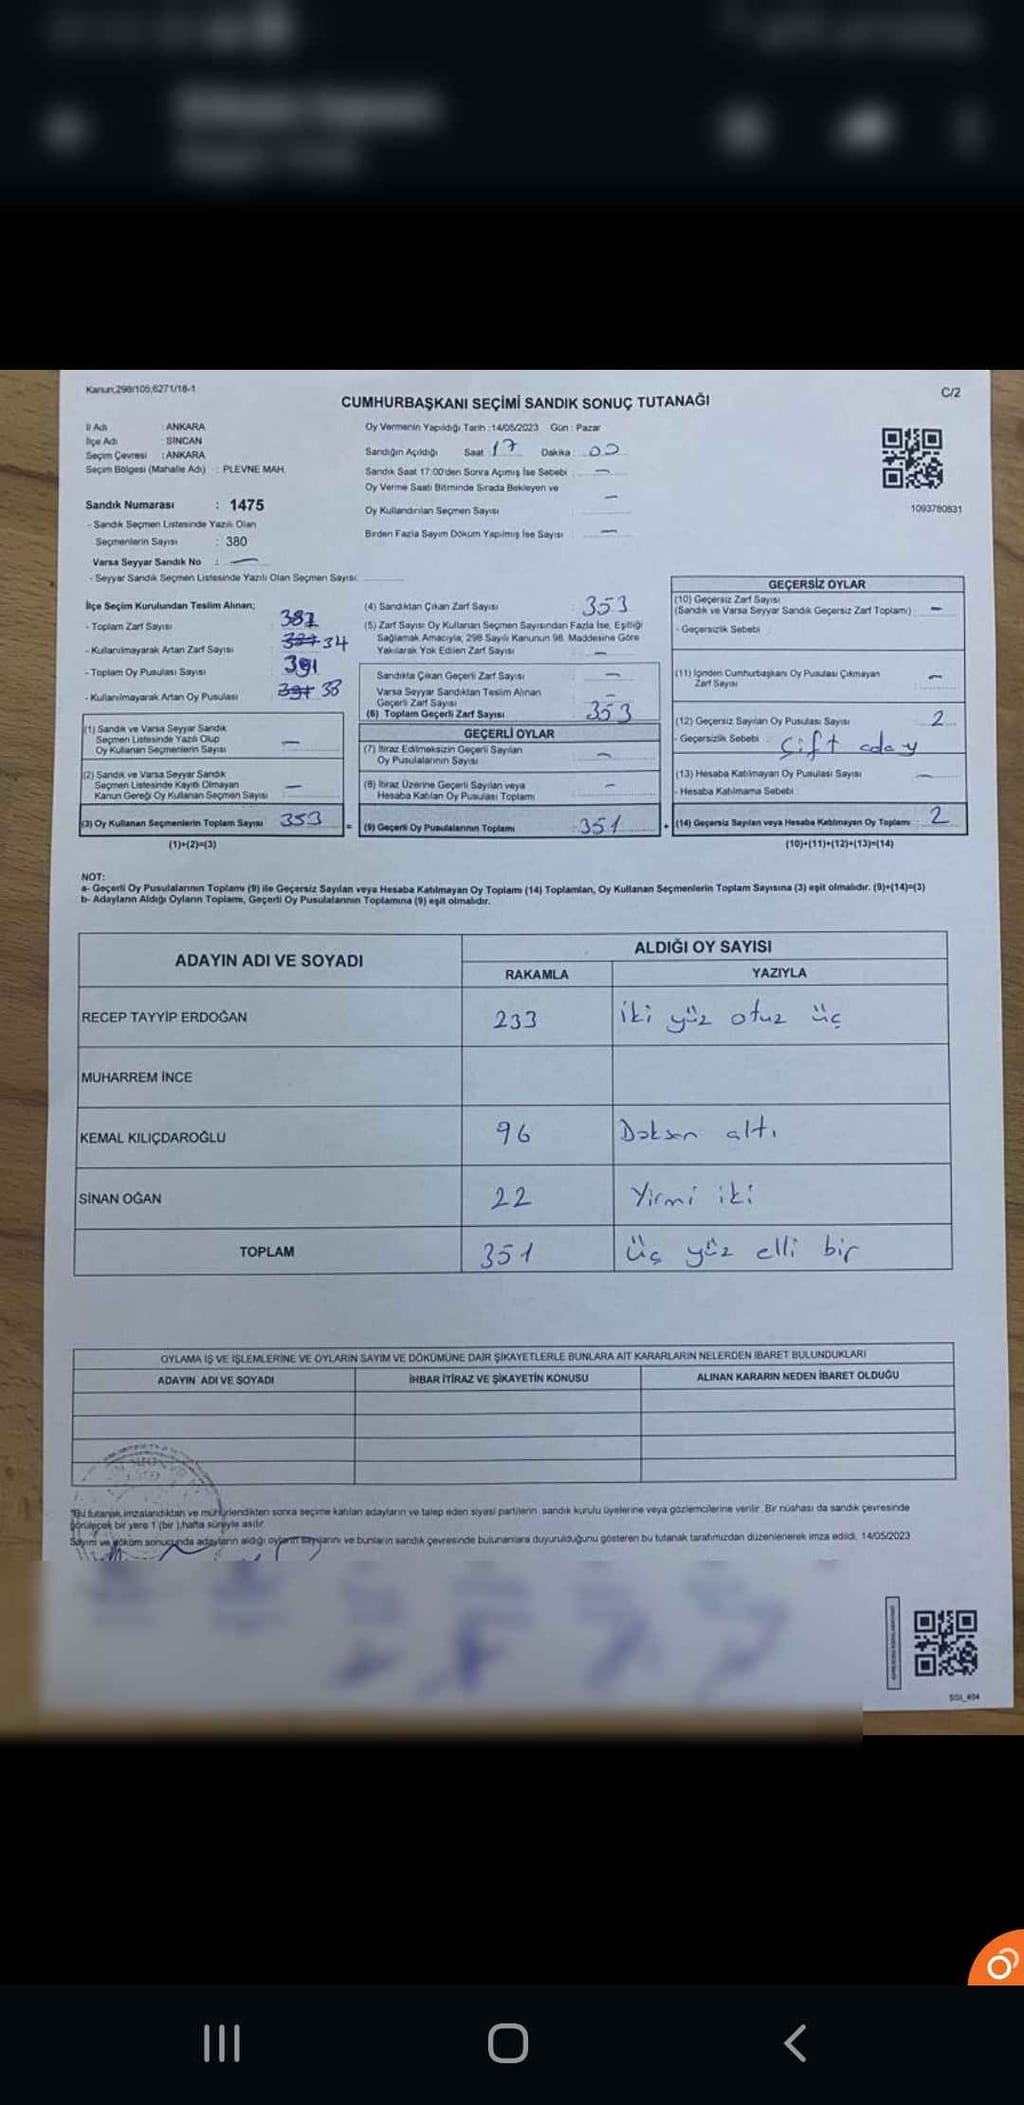 Kanun;298/105;6271/18-1
C/2
CUMHURBAŞKANI SEÇİMİ SANDIK SONUÇ TUTANAĞI
İl Adı : ANKARA
İlçe Adı : SİNCAN
Seçim Çevresi : ANKARA
Seçim Bölgesi (Mahalle Adı) : PLEVNE MAH.
Oy Vermenin Yapıldığı Tarih :14/05/2023 Gün : Pazar
Sandığın Açıldığı Saat : 17 Dakika : 00
Sandık Saat 17:00'den Sonra Açılmış İse Sebebi : —
Oy Verme Saati Bitiminde Sırada Bekleyen ve
Oy Kullandırılan Seçmen Sayısı : —
Birden Fazla Sayım Döküm Yapılmış İse Sayısı : —
1093780831
Sandık Numarası : 1475
- Sandık Seçmen Listesinde Yazılı Olan
Seçmenlerin Sayısı : 380
Varsa Seyyar Sandık No : —
- Seyyar Sandık Seçmen Listesinde Yazılı Olan Seçmen Sayısı:
İlçe Seçim Kurulundan Teslim Alınan;
- Toplam Zarf Sayısı 387
- Kullanılmayarak Artan Zarf Sayısı 34
- Toplam Oy Pusulası Sayısı 391
- Kullanılmayarak Artan Oy Pusulası 391 38
(1) Sandık ve Varsa Seyyar Sandık
Seçmen Listesinde Yazılı Olup
Oy Kullanan Seçmenlerin Sayısı : —
(2) Sandık ve Varsa Seyyar Sandık
Seçmen Listesinde Kayıtlı Olmayan
Kanun Gereği Oy Kullanan Seçmen Sayısı : —
(3) Oy Kullanan Seçmenlerin Toplam Sayısı : 353
(1)+(2)=(3)
(4) Sandıktan Çıkan Zarf Sayısı : 353
(5) Zarf Sayısı Oy Kullanan Seçmen Sayısından Fazla İse, Eşitliği
Sağlamak Amacıyla; 298 Sayılı Kanunun 98. Maddesine Göre
Yakılarak Yok Edilen Zarf Sayısı : —
Sandıkta Çıkan Geçerli Zarf Sayısı : —
Varsa Seyyar Sandıktan Teslim Alınan
Geçerli Zarf Sayısı : —
(6) Toplam Geçerli Zarf Sayısı : 353
GEÇERLİ OYLAR
(7) İtiraz Edilmeksizin Geçerli Sayılan
Oy Pusulalarının Sayısı : —
(8) İtiraz Üzerine Geçerli Sayılan veya
Hesaba Katılan Oy Pusulası Toplamı : —
= (9) Geçerli Oy Pusulalarının Toplamı : 351
GEÇERSİZ OYLAR
(10) Geçersiz Zarf Sayısı
(Sandık ve Varsa Seyyar Sandık Geçersiz Zarf Toplamı) : —
- Geçersizlik Sebebi :
(11) İçinden Cumhurbaşkanı Oy Pusulası Çıkmayan
Zarf Sayısı : —
(12) Geçersiz Sayılan Oy Pusulası Sayısı : 2
- Geçersizlik Sebebi : Çift aday
(13) Hesaba Katılmayan Oy Pusulası Sayısı : —
- Hesaba Katılmama Sebebi :
+ (14) Geçersiz Sayılan veya Hesaba Katılmayan Oy Toplamı : 2
(10)+(11)+(12)+(13)=(14)
NOT:
a- Geçerli Oy Pusulalarının Toplamı (9) ile Geçersiz Sayılan veya Hesaba Katılmayan Oy Toplamı (14) Toplamları, Oy Kullanan Seçmenlerin Toplam Sayısına (3) eşit olmalıdır. (9)+(14)=(3)
b- Adayların Aldığı Oyların Toplamı, Geçerli Oy Pusulalarının Toplamına (9) eşit olmalıdır.
ADAYIN ADI VE SOYADI
ALDIĞI OY SAYISI
RAKAMLA YAZIYLA
RECEP TAYYİP ERDOĞAN 233 iki yüz otuz üç
MUHARREM İNCE
KEMAL KILIÇDAROĞLU 96 Doksan altı
SİNAN OĞAN 22 Yirmi iki
TOPLAM 351 üç yüz elli bir
OYLAMA İŞ VE İŞLEMLERİNE VE OYLARIN SAYIM VE DÖKÜMÜNE DAİR ŞİKAYETLERLE BUNLARA AİT KARARLARIN NELERDEN İBARET BULUNDUKLARI
ADAYIN ADI VE SOYADI İHBAR İTİRAZ VE ŞİKAYETİN KONUSU ALINAN KARARIN NEDEN İBARET OLDUĞU
*Bu tutanak imzalandıktan ve mühürlendikten sonra seçime katılan adayların ve talep eden siyasi partilerin sandık kurulu üyelerine veya gözlemcilerine verilir. Bir nüshası da sandık çevresinde
görülecek bir yere 1 (bir ) hafta süreyle asılır.
Sayım ve döküm sonucunda adayların aldığı oyların sayılarını ve bunların sandık çevresinde bulunanlara duyurulduğunu gösteren bu tutanak tarafımızdan düzenlenerek imza edildi. 14/05/2023